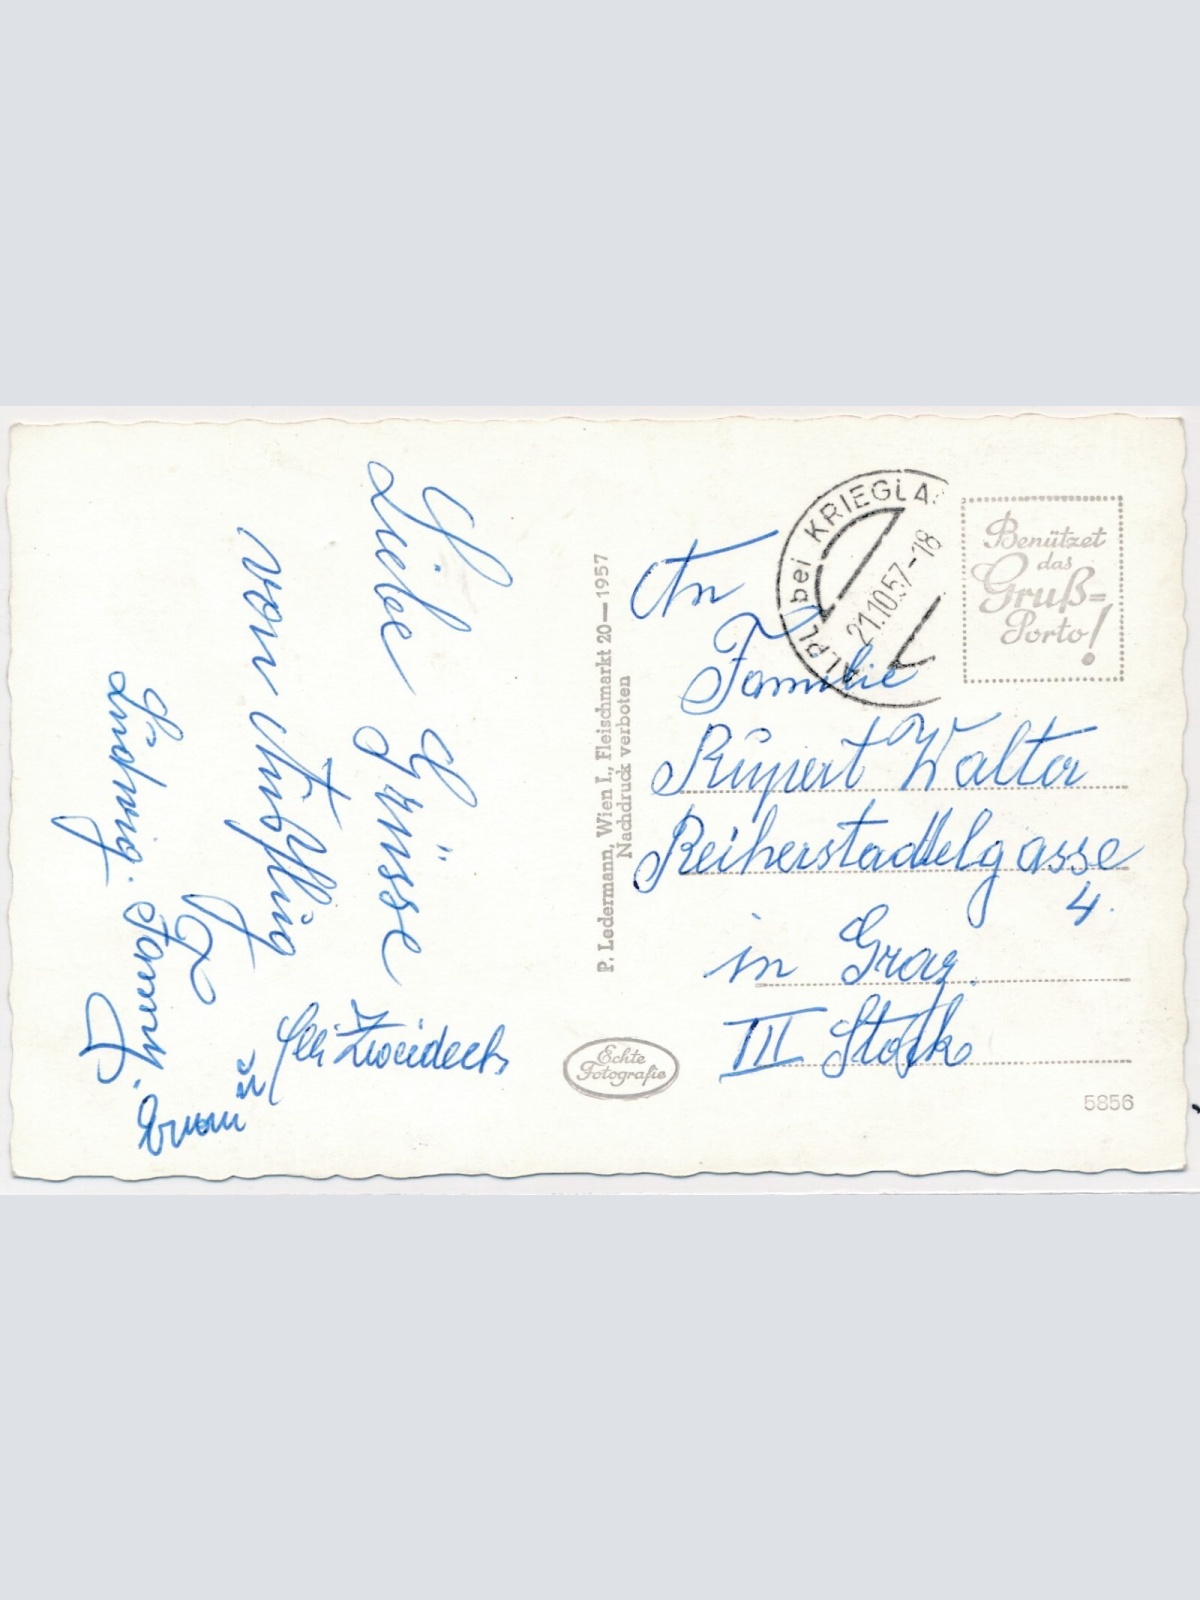 Liebe Grüsse
von Ausflug
Ludwig. Fanny.
Zweideck
P. Ledermann, Wien I., Fleischmarkt 20—1957
Nachdruck verboten
Echte
Fotografie
ALPL bei KRIEGLA
21.10.57-18
Benützet
das
Gruß-
Porto!
An
Familie
Rupert Walter
Reiherstadtelgasse
4.
in Graz.
III Stock
5856